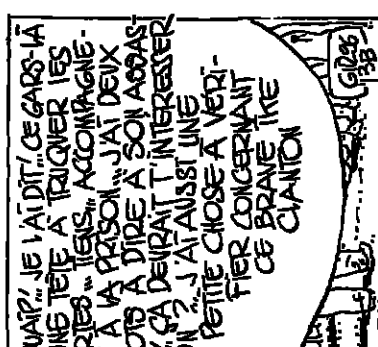 UAIP! JE L'AI DIT!.. CE GARS-LÀ
NE TÊTE À TRIQUER LES
RTES... TIENS... ACCOMPAGNE-
À LA PRISON... J'AI DEUX
OTS À DIRE À SON ACOAS-
ÇA DEVRAIT T'INTERESSER
ON? J'AI AUSSI UNE
PETITE CHOSE À VERI-
FIER CONCERNANT
CE BRAVE IKE
CLANTON
GIR 96
3B